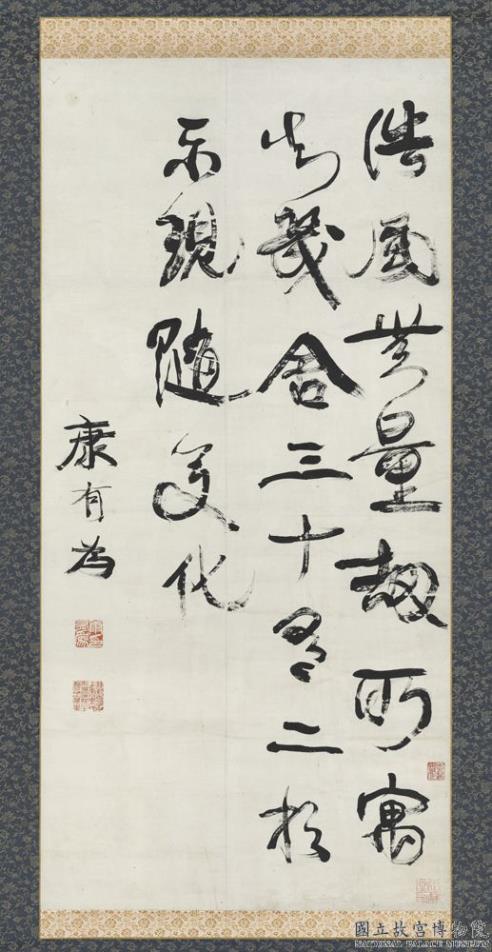 無量劫所寓
知幾舍三十有二相
示現隨變化
康有為
國立故宮博物院
NATIONAL PALACE MUSEUM